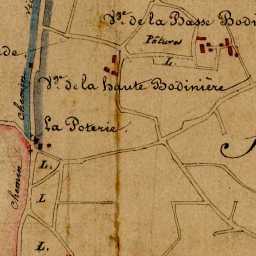 Vge. de la Basse Bodi
Pâtures
L
de.
Chemin
Vge. de la haute Bodinière
La Poterie.
L.
Chemin
L
L.